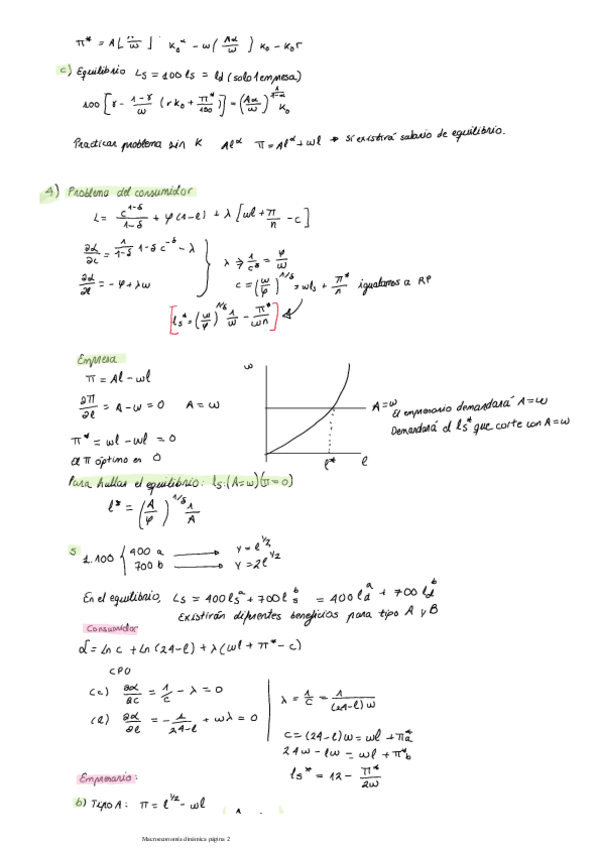 π* = A[ /ω ] k₀^α - ω (Aα/ω) k₀ - k₀r
c) Equilibrio Ls = 100 ls = ld (solo 1 empresa)
100 [γ - (1-γ)/ω (rk₀ + π*/100)] = (Aα/ω)^(1/(1-α)) k₀
Practicar problema sin K Al^α π = Al^α + ωl → Sí existirá salario de equilibrio.
4) Problema del consumidor
L = c^(1-δ)/(1-δ) + φ(1-l) + λ[ωl + π/n - c]
∂L/∂c = 1/(1-δ) 1-δ c^(-δ) - λ
∂L/∂l = -φ + λω
λ → 1/c^δ = φ/ω
c = (ω/φ)^(1/δ) = ωls + π*/n igualamos a RP
[ls* = (ω/φ)^(1/δ) 1/ω - π*/ωn]
Empresa
π = Al - ωl
∂π/∂l = A - ω = 0 A = ω
π* = ωl - ωl = 0
El π óptimo es 0
ω
A=ω
l* l
El empresario demandará A=ω
Demandará el ls* que corte con A=ω
Para hallar el equilibrio: ls: (A=ω)(π=0)
l* = (A/φ)^(1/δ) 1/A
5 1.100 { 400 a → Y = l^(1/2)
700 b → Y = 2l^(1/2)
En el equilibrio, Ls = 400 ls^a + 700 ls^b = 400 ld^a + 700 ld^b
Existirán diferentes beneficios para tipo A y B
Consumidor
L = ln c + ln (24-l) + λ(ωl + π* - c)
CPO
(c) ∂L/∂c = 1/c - λ = 0
(l) ∂L/∂l = -1/(24-l) + ωλ = 0
λ = 1/c = 1/((24-l)ω)
c = (24-l)ω = ωl + πa*
24ω - lω = ωl + π*b
ls* = 12 - π*/2ω
Empresario:
b) Tipo A: π = l^(1/2) - ωl
Macroeconomía dinámica página 2